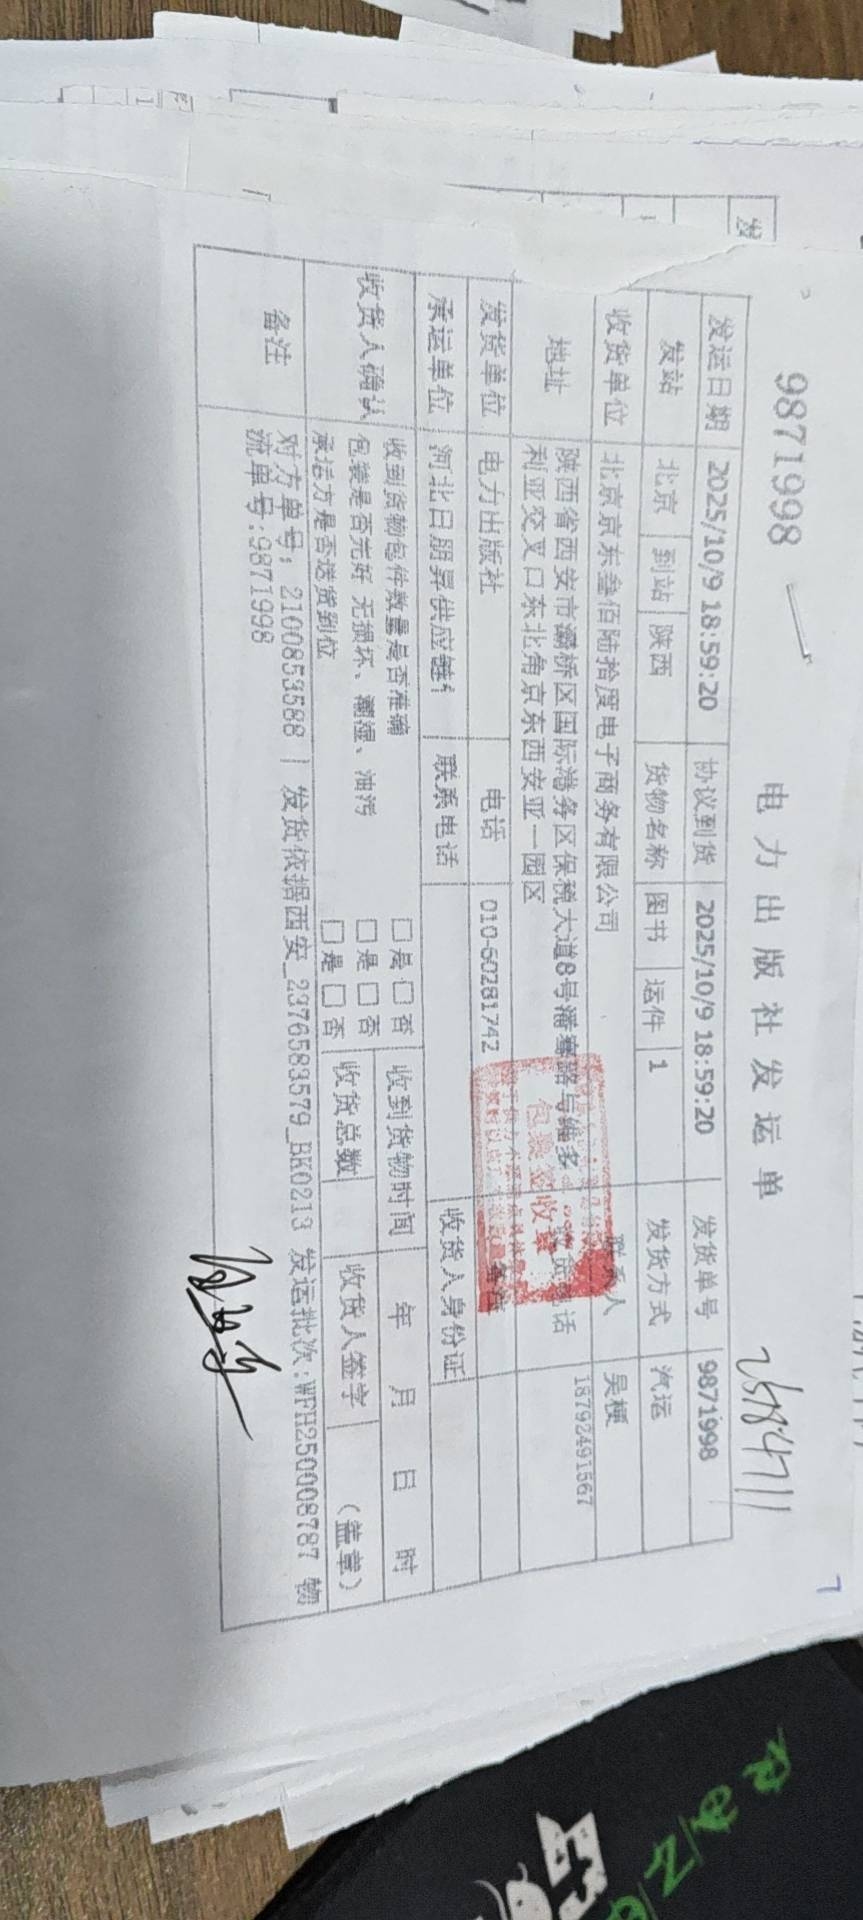 9871998
电力出版社发运单
发运日期 2025/10/9 18:59:20 协议到货 2025/10/9 18:59:20 发货单号 9871998
发站 北京 到站 陕西 货物名称 图书 运件 1 发货方式 汽运
收货单位 北京京东叁佰陆拾度电子商务有限公司 联系人 吴梗
地址 陕西省西安市灞桥区国际港务区保税大道8号潘骞路与维多 话 18792491567
利亚交叉口东北角京东西安亚一园区
发货单位 电力出版社 电话 010-60281742 备注
承运单位 河北日朋昇供应链 联系电话 收货人身份证
收货人确认 收到货物包件数量是否准确 □是 □否 收到货物时间 年 月 日 时
包装是否完好 无损坏、潮湿、油污 □是 □否 收货总数 收货人签字 (盖章)
承运方是否送货到位 □是 □否
备注 对方单号；2100853588 | 发货依据西安_2376583579_BK0213 发运批次:WFH250008787 物
流单号:9871998
包装签收章
7